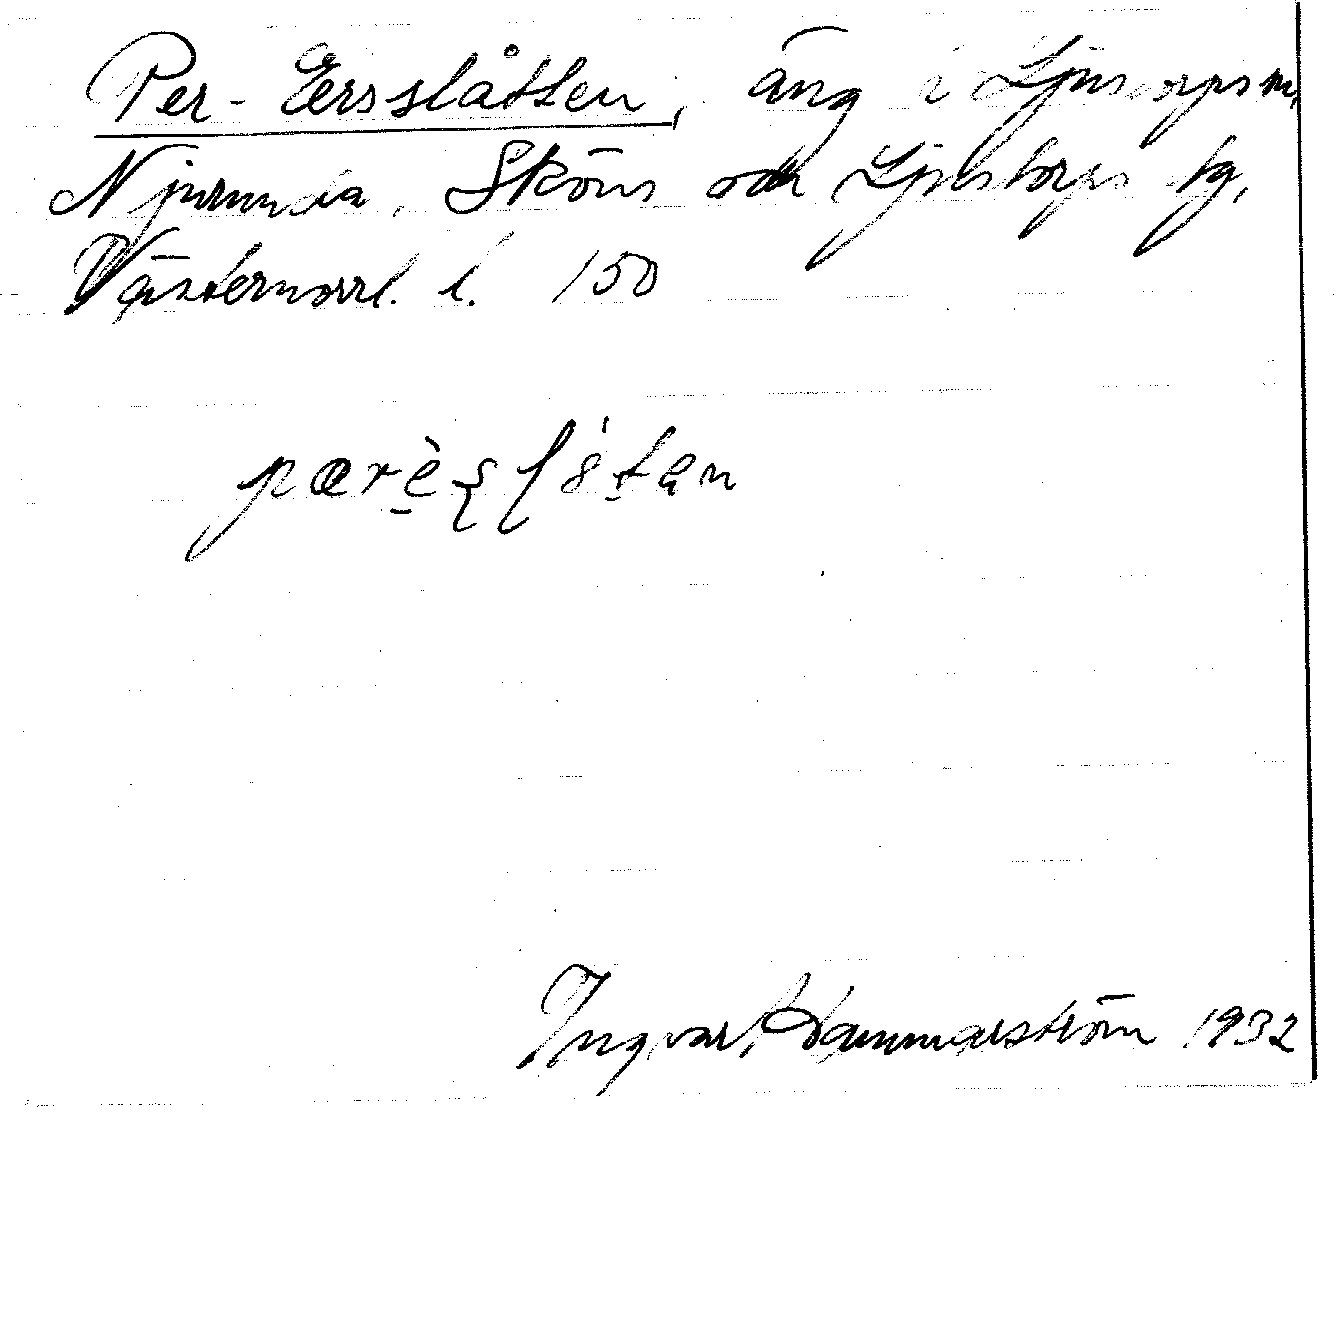 Per-Eersslåtten, äng i Ljustorps sn,
Njurunda, Sköns och Ljustorps tg,
Västernorrl. l. 150
Ingvar Hammarström 1932